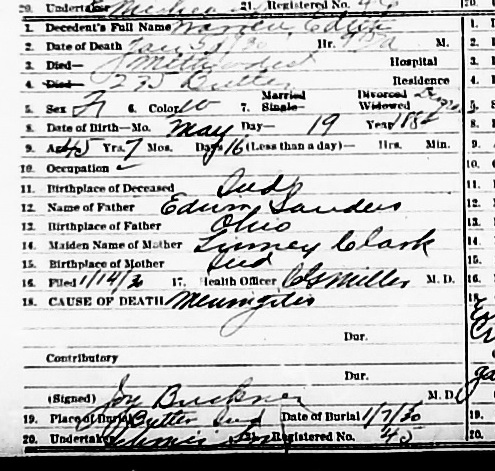 20. Undertaker 21. Registered No. 20.
1. Decedent's Full Name Warren, Edith 1.
2. Date of Death Jan Hr. M. 2.
3. Died— Methodist Hospital 3.
4. Died— 235 Butler Residence 4.
5. Sex F 6. Color W 7. Married Single— Divorced Widowed 5.
8. Date of Birth—Mo. May Day— 19 Year 1884
9. Age 45 Yrs. 7 Mos. Days 16 (Less than a day)— Hrs. Min. 9.
10. Occupation
11. Birthplace of Deceased Ind
12. Name of Father Edwin Sanders
13. Birthplace of Father Ohio
14. Maiden Name of Mother Clark
15. Birthplace of Mother Ind
16. Filed 1/14/30 17. Health Officer Miller M. D.
18. CAUSE OF DEATH Meningitis
Dur.
Contributory
Dur.
(Signed) Joy Buckner M. D.
19. Place of Burial Butler Ind Date of Burial 1/7/30 19.
20. Undertaker 21. Registered No. 45 20.